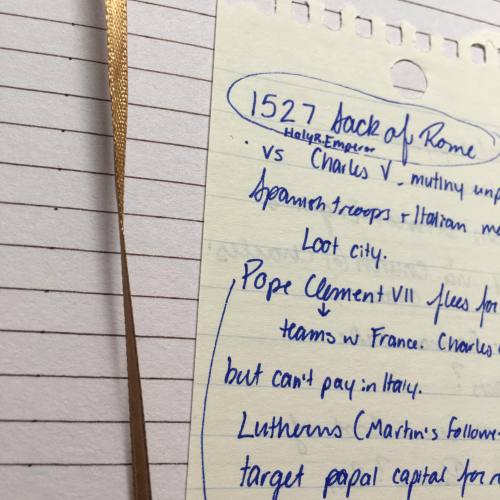 1527 Sack of Rome
Holy R. Emperor
· vs Charles V. mutiny unp
Spanish troops + Italian me
Loot city.
Pope Clement VII flees for
↓
teams w France. Charles
but can't pay in Italy.
Lutherns (Martin's Followe
target papal capital for r